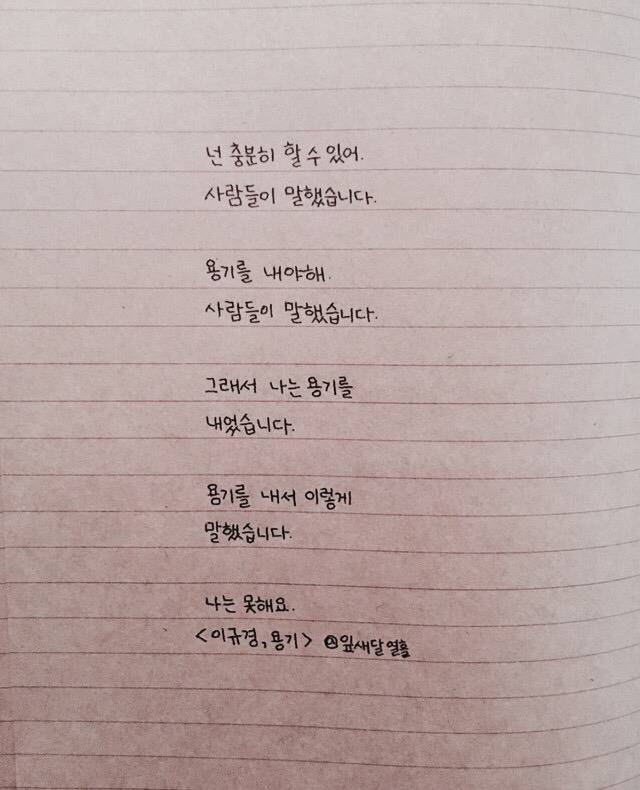 넌 충분히 할 수 있어.
사람들이 말했습니다.
용기를 내야해.
사람들이 말했습니다.
그래서 나는 용기를
내었습니다.
용기를 내서 이렇게
말했습니다.
나는 못해요.
<이규경, 용기> @잎새달열흘